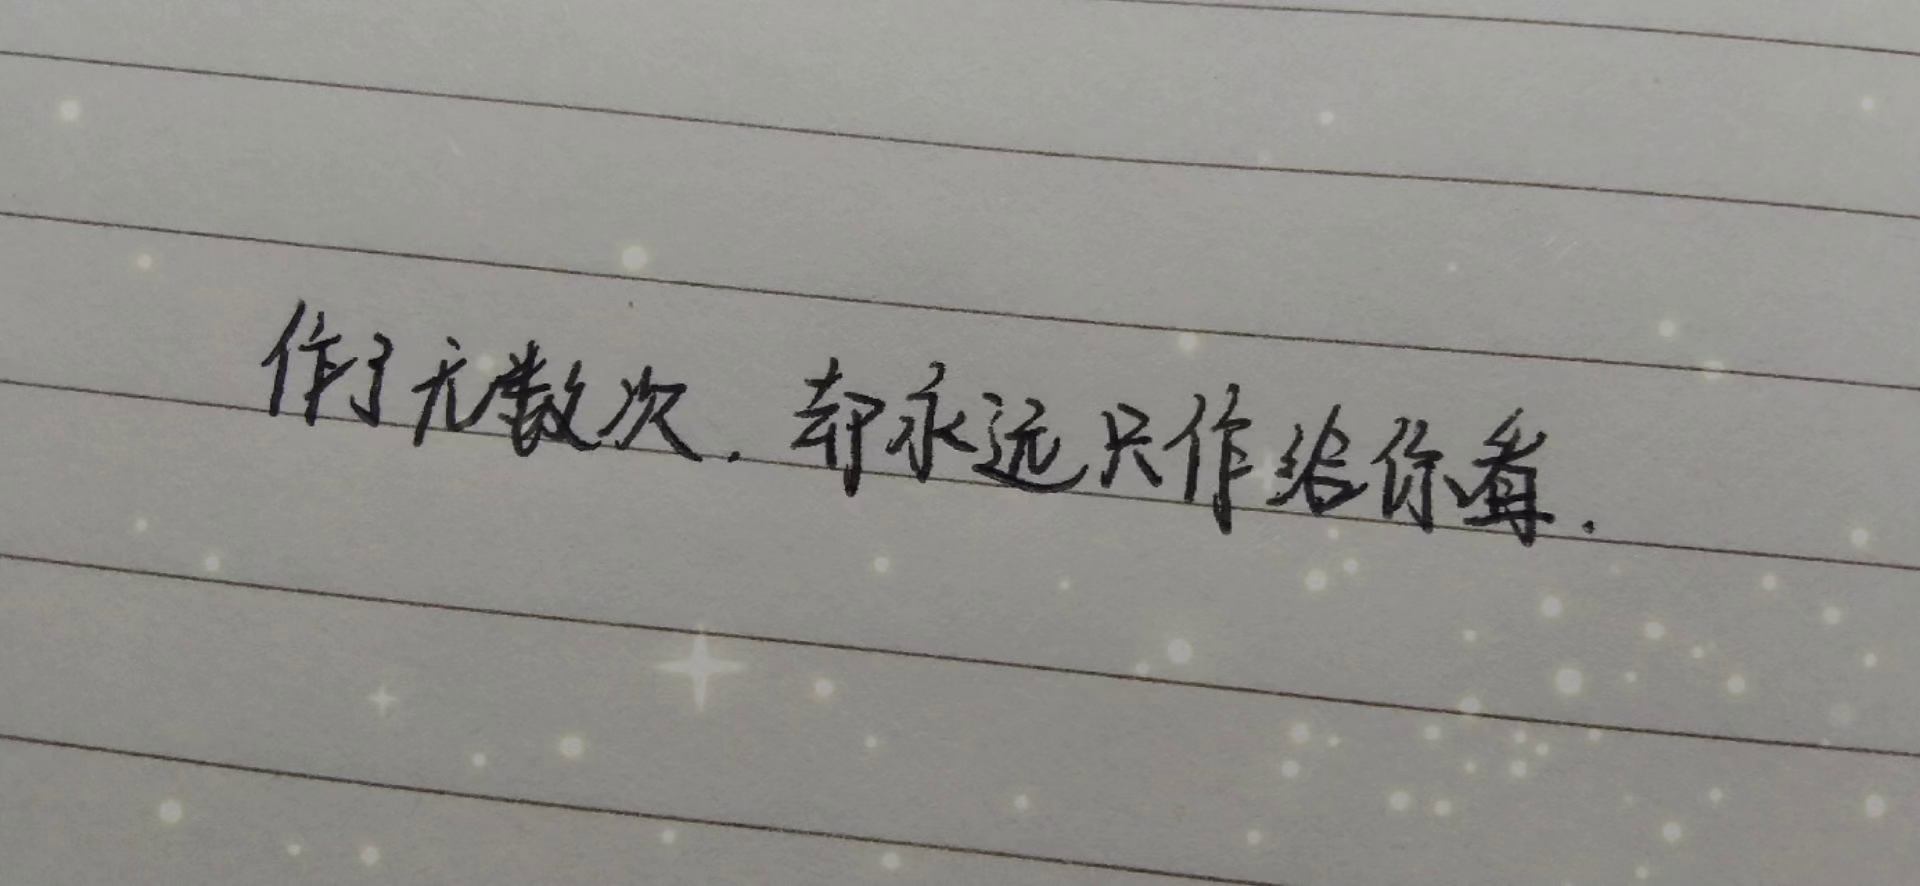 作了无数次.却永远只作给你看.